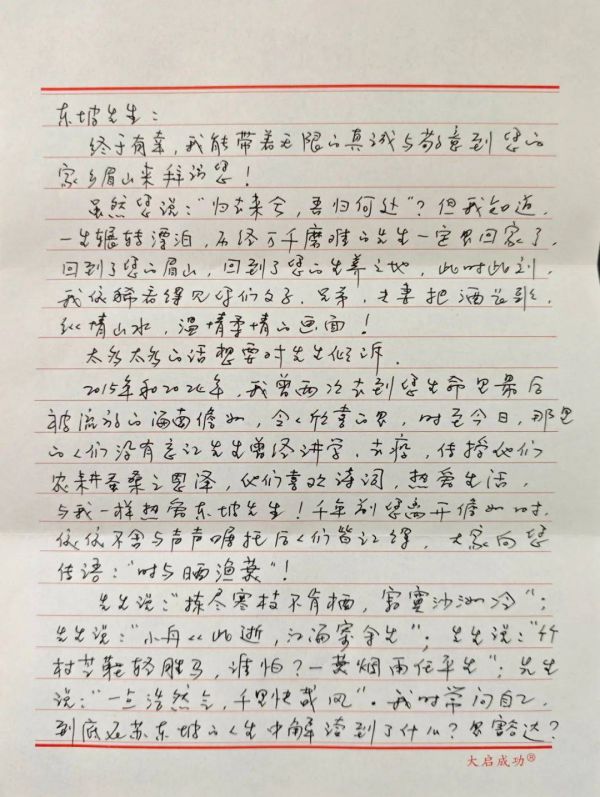 东坡先生：
终于有幸，我能带着无限的真诚与敬意到您的
家乡眉山来拜谒您！
虽然您说："归去来兮，吾归何处"？但我知道，
一生辗转漂泊，历经万千磨难的先生一定是回家了，
回到了您的眉山，回到了您的生养之地，此时此刻，
我依稀看得见你们父子、兄弟、夫妻把酒当歌，
纵情山水，温情柔情的画面！
太多太多的话想要对先生倾诉．
2015年和2024年，我曾两次去到您生命里最后
被流放的海南儋州，令人欣喜的是，时至今日，那里
的人们没有忘记先生曾经讲学、去疫，传授他们
农耕蚕桑之恩泽，他们喜欢诗词，热爱生活，
与我一样热爱东坡先生！千年前您离开儋州时，
依依不舍与声声嘱托后人们皆记得，大家向您
传语："时与晒渔蓑"！
先生说："拣尽寒枝不肯栖，寂寞沙洲冷"；
先生说："小舟从此逝，江海寄余生"；先生说："竹
杖芒鞋轻胜马，谁怕？一蓑烟雨任平生"；先生
说："一点浩然气，千里快哉风"。我时常问自己，
到底在苏东坡的人生中解读到了什么？是豁达？
大启成功®